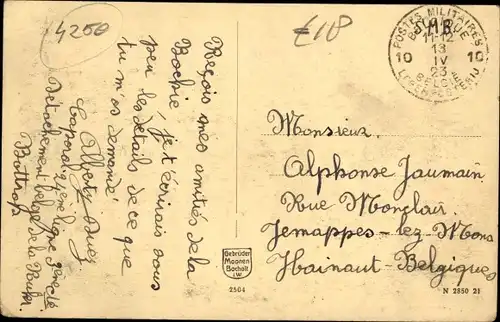 4250
£18
POSTES MILITAIRES
BELGIQUE
11-12
13
IV
23
10 10
Reçois mes amitiés de la
Bochie, je t'écrirais sous
peu les détails de ce que
tu m'as demandé
Albert
Caporal
Détachement belge de la Ruhr
Bottrop
Monsieur
Alphonse Jaumain
Rue Monclau
Jemappes-lez-Mons
Hainaut-Belgique
Gebrüder
Maanen
Bocholt
i.W.
2564
N 2850 21